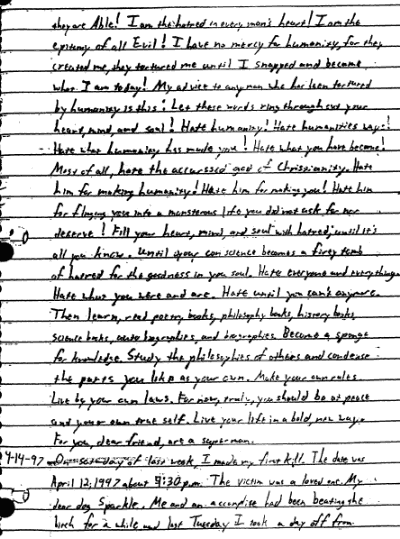 they are Able! I am the hatred in every man's heart! I am the
epitomy of all Evil! I have no mercy for humanity, for they
created me, they tortured me until I snapped and became
what I am today! My advice to any man who has been tortured
by humanity is this: Let these words ring throughout your
heart, mind, and soul! Hate humanity! Hate humanities ways!
Hate what humanity has made you! Hate what you have become!
Most of all, hate the accurssed god of Christianity. Hate
him for making humanity! Hate him for making you! Hate him
for flinging you into a monsterous life you did not ask for nor
deserve! Fill your heart, mind, and soul with hatred; until it's
all you know. Until your conscience becomes a firey tomb
of hatred for the goodness in you soul. Hate everyone and everything.
Hate what you were and are. Hate until you can't anymore.
Then learn, read poetry books, philosophy books, history books,
science books, auto biographies, and biographies. Become a sponge
for knowledge. Study the philosophies of others and condense
the parts you like as your own. Make your own rules
Live by your own laws. For now, truly, you should be at peace
and your own true self. Live your life in a bold, new way.
For you, dear friend, are a superman.
4-14-97 On saturday of last week, I made my first kill. The date was
April 12, 1997 about 4:30 p.m. The victim was a loved one. My
dear dog Sparkle. Me and an accomplise had been beating the
bitch for a while and last Tuesday I took a day off from